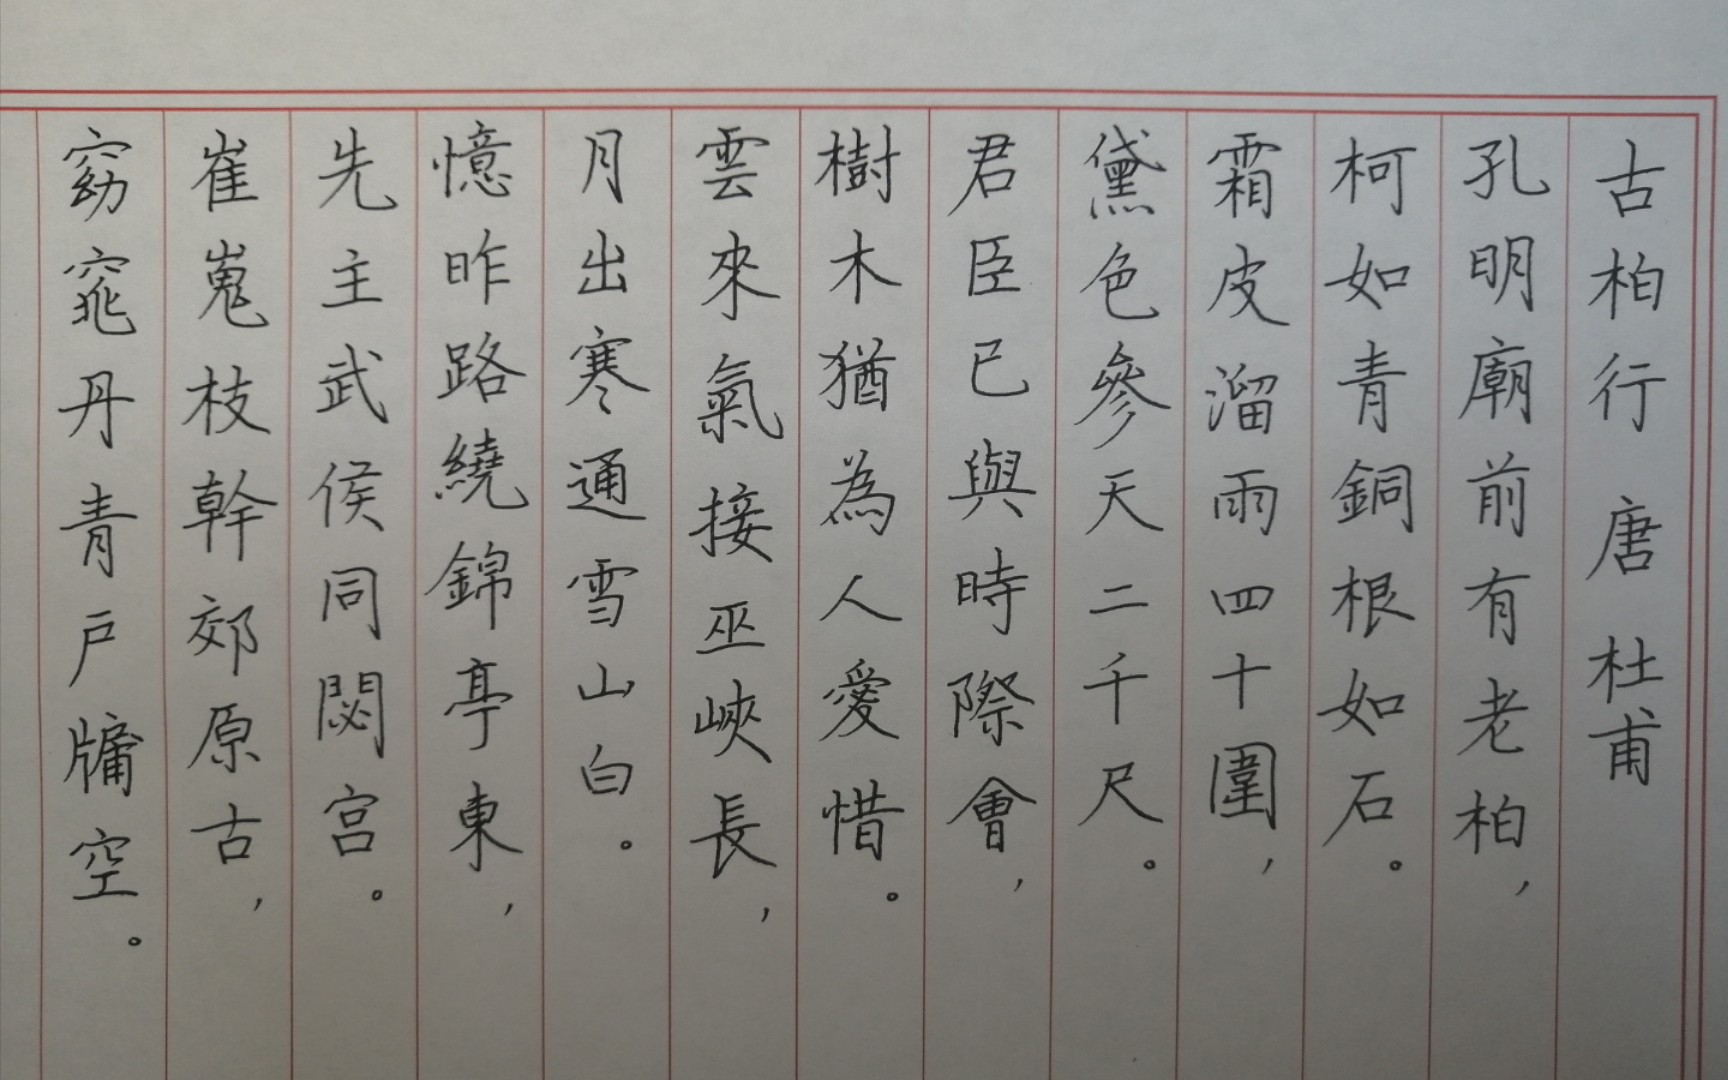 古柏行 唐 杜甫
孔明廟前有老柏，
柯如青銅根如石。
霜皮溜雨四十圍，
黛色參天二千尺。
君臣已與時際會，
樹木猶為人愛惜。
雲來氣接巫峽長，
月出寒通雪山白。
憶昨路繞錦亭東，
先主武侯同閟宮。
崔嵬枝幹郊原古，
窈窕丹青戶牖空。